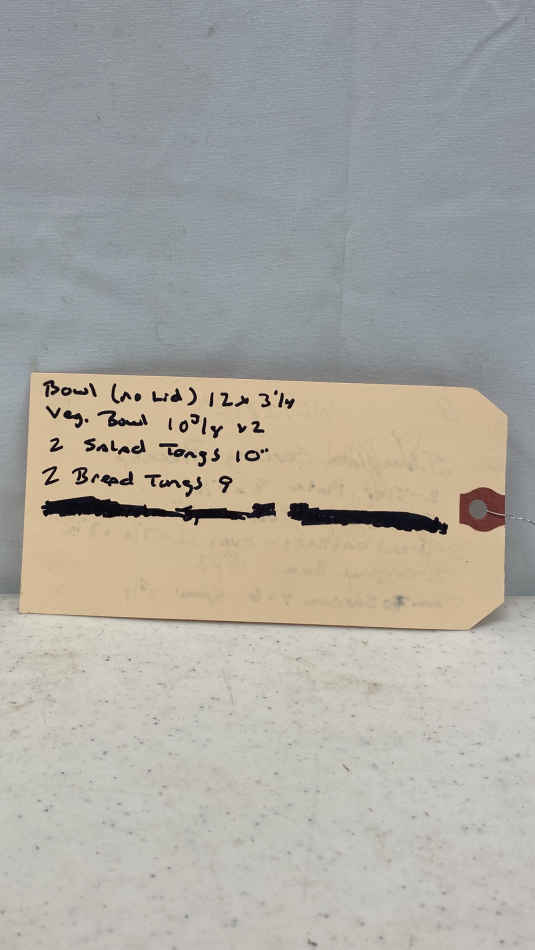 Bowl (no Lid) 12 x 3 1/4
Veg. Bowl 10 3/4 x 2
2 Salad Tongs 10"
2 Bread Tungs 9